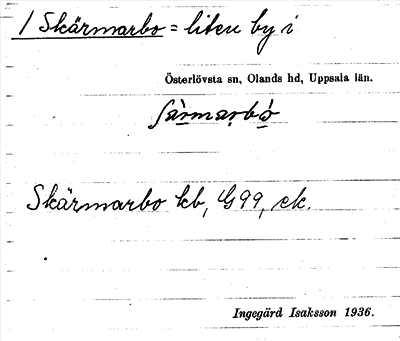 1 Skärmarbo = liten by i
Österlövsta sn, Olands hd, Uppsala län.
Skärmarbo kb, G99, ek.
Ingegärd Isaksson 1936.